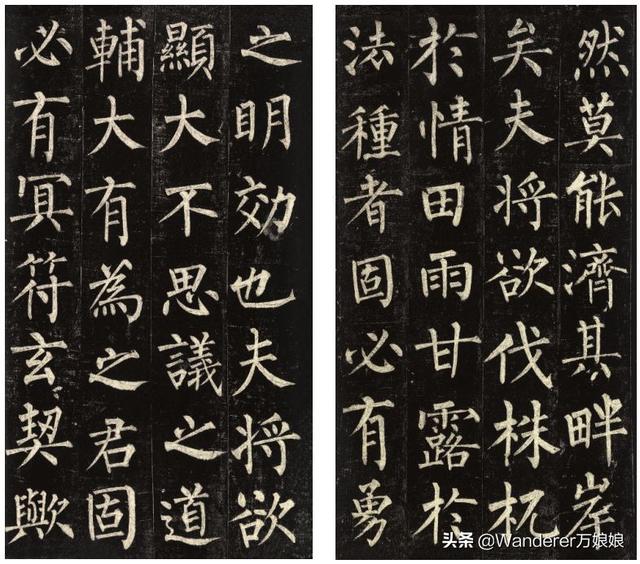 然莫能濟其畔岸
矣夫将欲伐株杌
於情田雨甘露於
法種者固必有勇
之明効也夫将欲
顯大不思議之道
輔大有為之君固
必有冥符玄契歟
头条 @Wanderer万娘娘